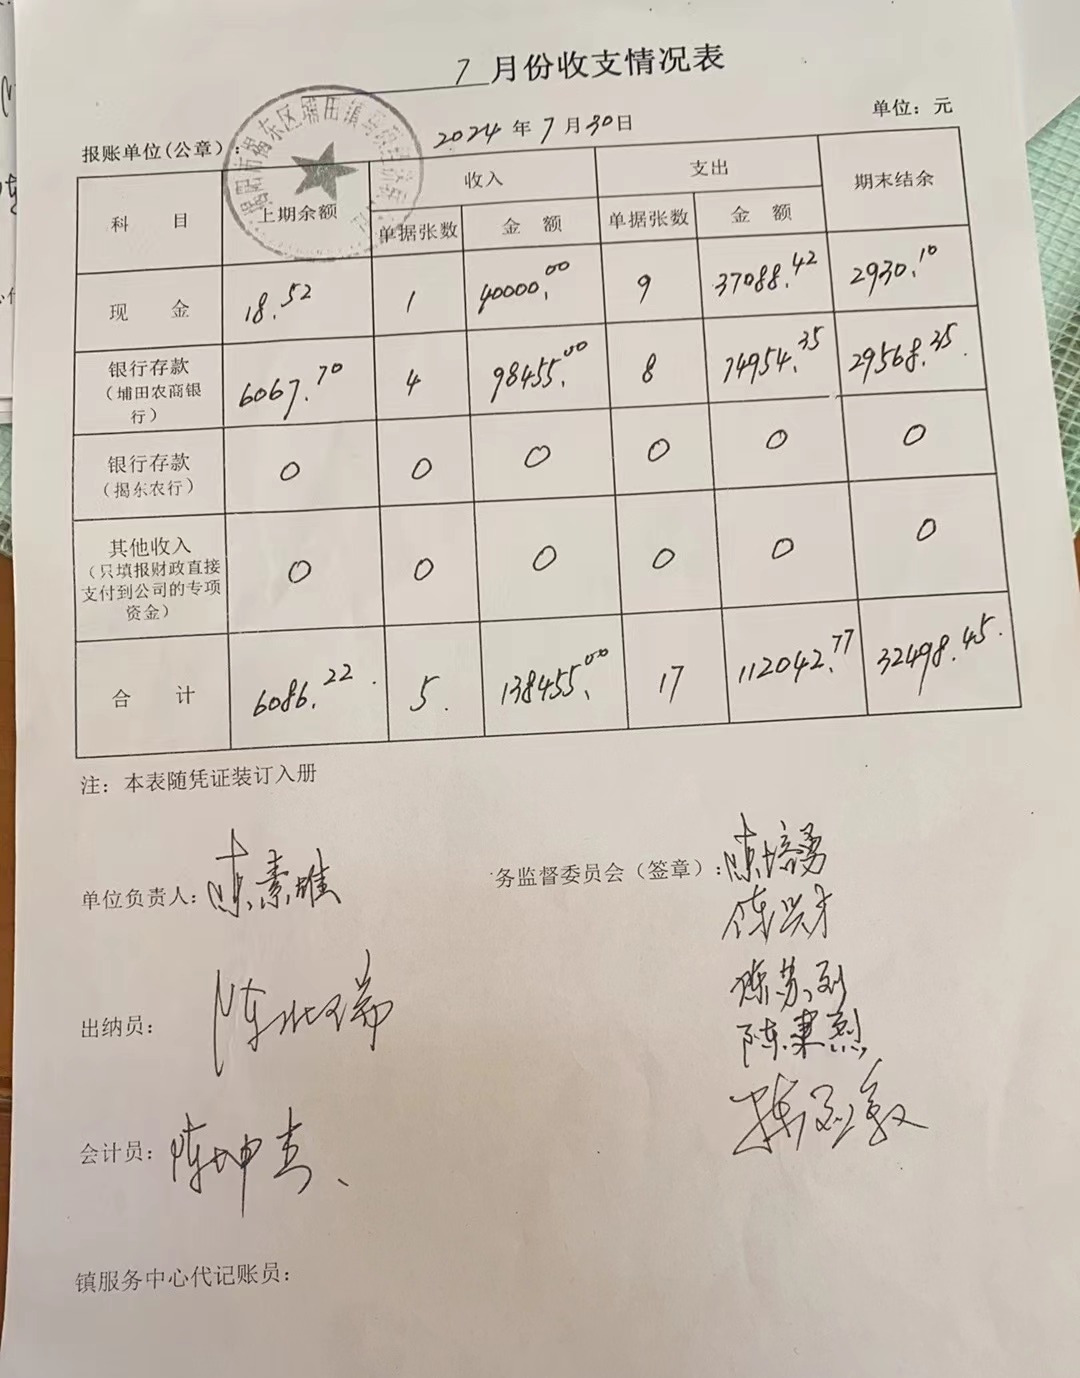 7 月份收支情况表
报账单位(公章): 2024 年 7 月 30 日 单位: 元
科 目 上期余额 收入 支出 期末结余
单据张数 金 额 单据张数 金 额
现 金 18.52 1 40000.00 9 37088.42 2930.10
银行存款 (埔田农商银行) 6067.70 4 98455.00 8 74954.35 29568.35
银行存款 (揭东农行) 0 0 0 0 0 0
其他收入 (只填报财政直接支付到公司的专项资金) 0 0 0 0 0 0
合 计 6086.22 5 138455.00 17 112042.77 32498.45
注: 本表随凭证装订入册
单位负责人: 陈素雄 务监督委员会(签章): 陈培勇
陈兴才
陈苏列
出纳员: 陈
陈秉烈
会计员: 陈坤
镇服务中心代记账员: